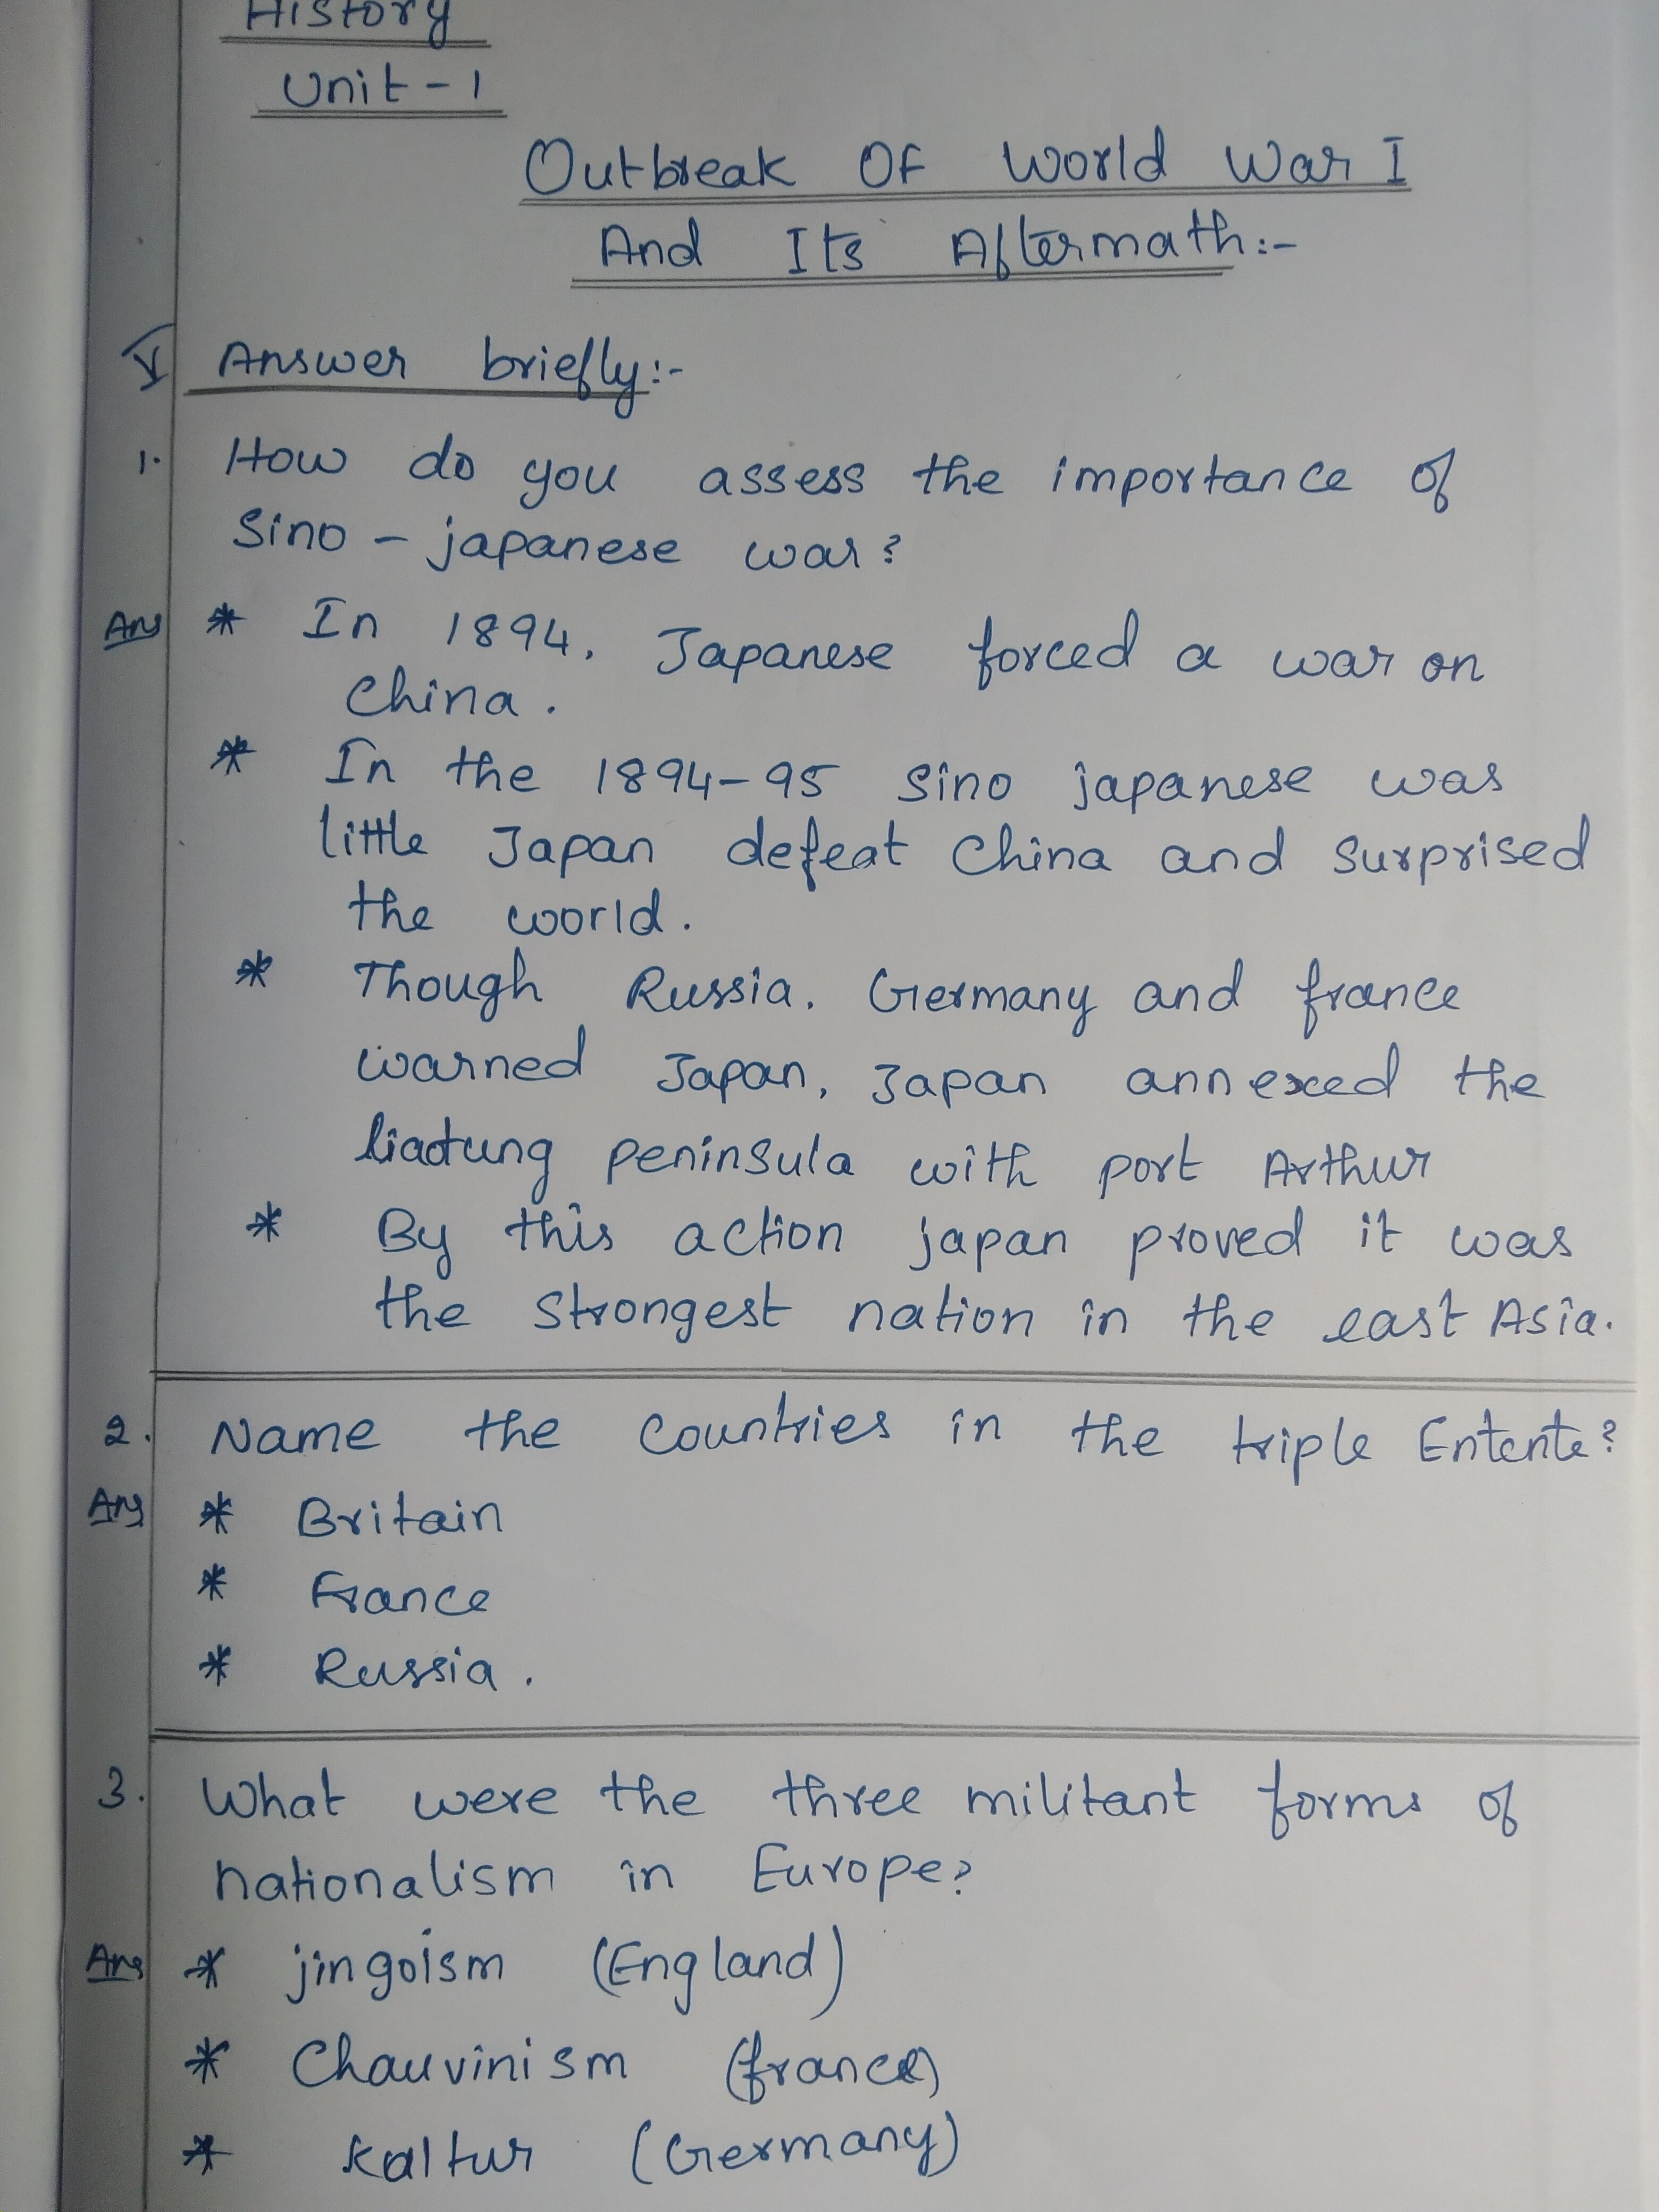 History
Unit - 1
Outbreak Of World War I
And Its Aftermath:-
V Answer briefly:-
1. How do you assess the importance of
Sino - japanese war?
Ans * In 1894, Japanese forced a war on
China.
* In the 1894-95 Sino japanese was
little Japan defeat China and Surprised
the world.
* Though Russia, Germany and france
warned Japan, Japan annexed the
liaotung peninsula with port Arthur
* By this action japan proved it was
the strongest nation in the east Asia.
2. Name the Countries in the triple Entente?
Ans * Britain
* France
* Russia.
3. What were the three militant forms of
nationalism in Europe?
Ans * jingoism (England)
* Chauvinism (france)
* Kaltur (Germany)